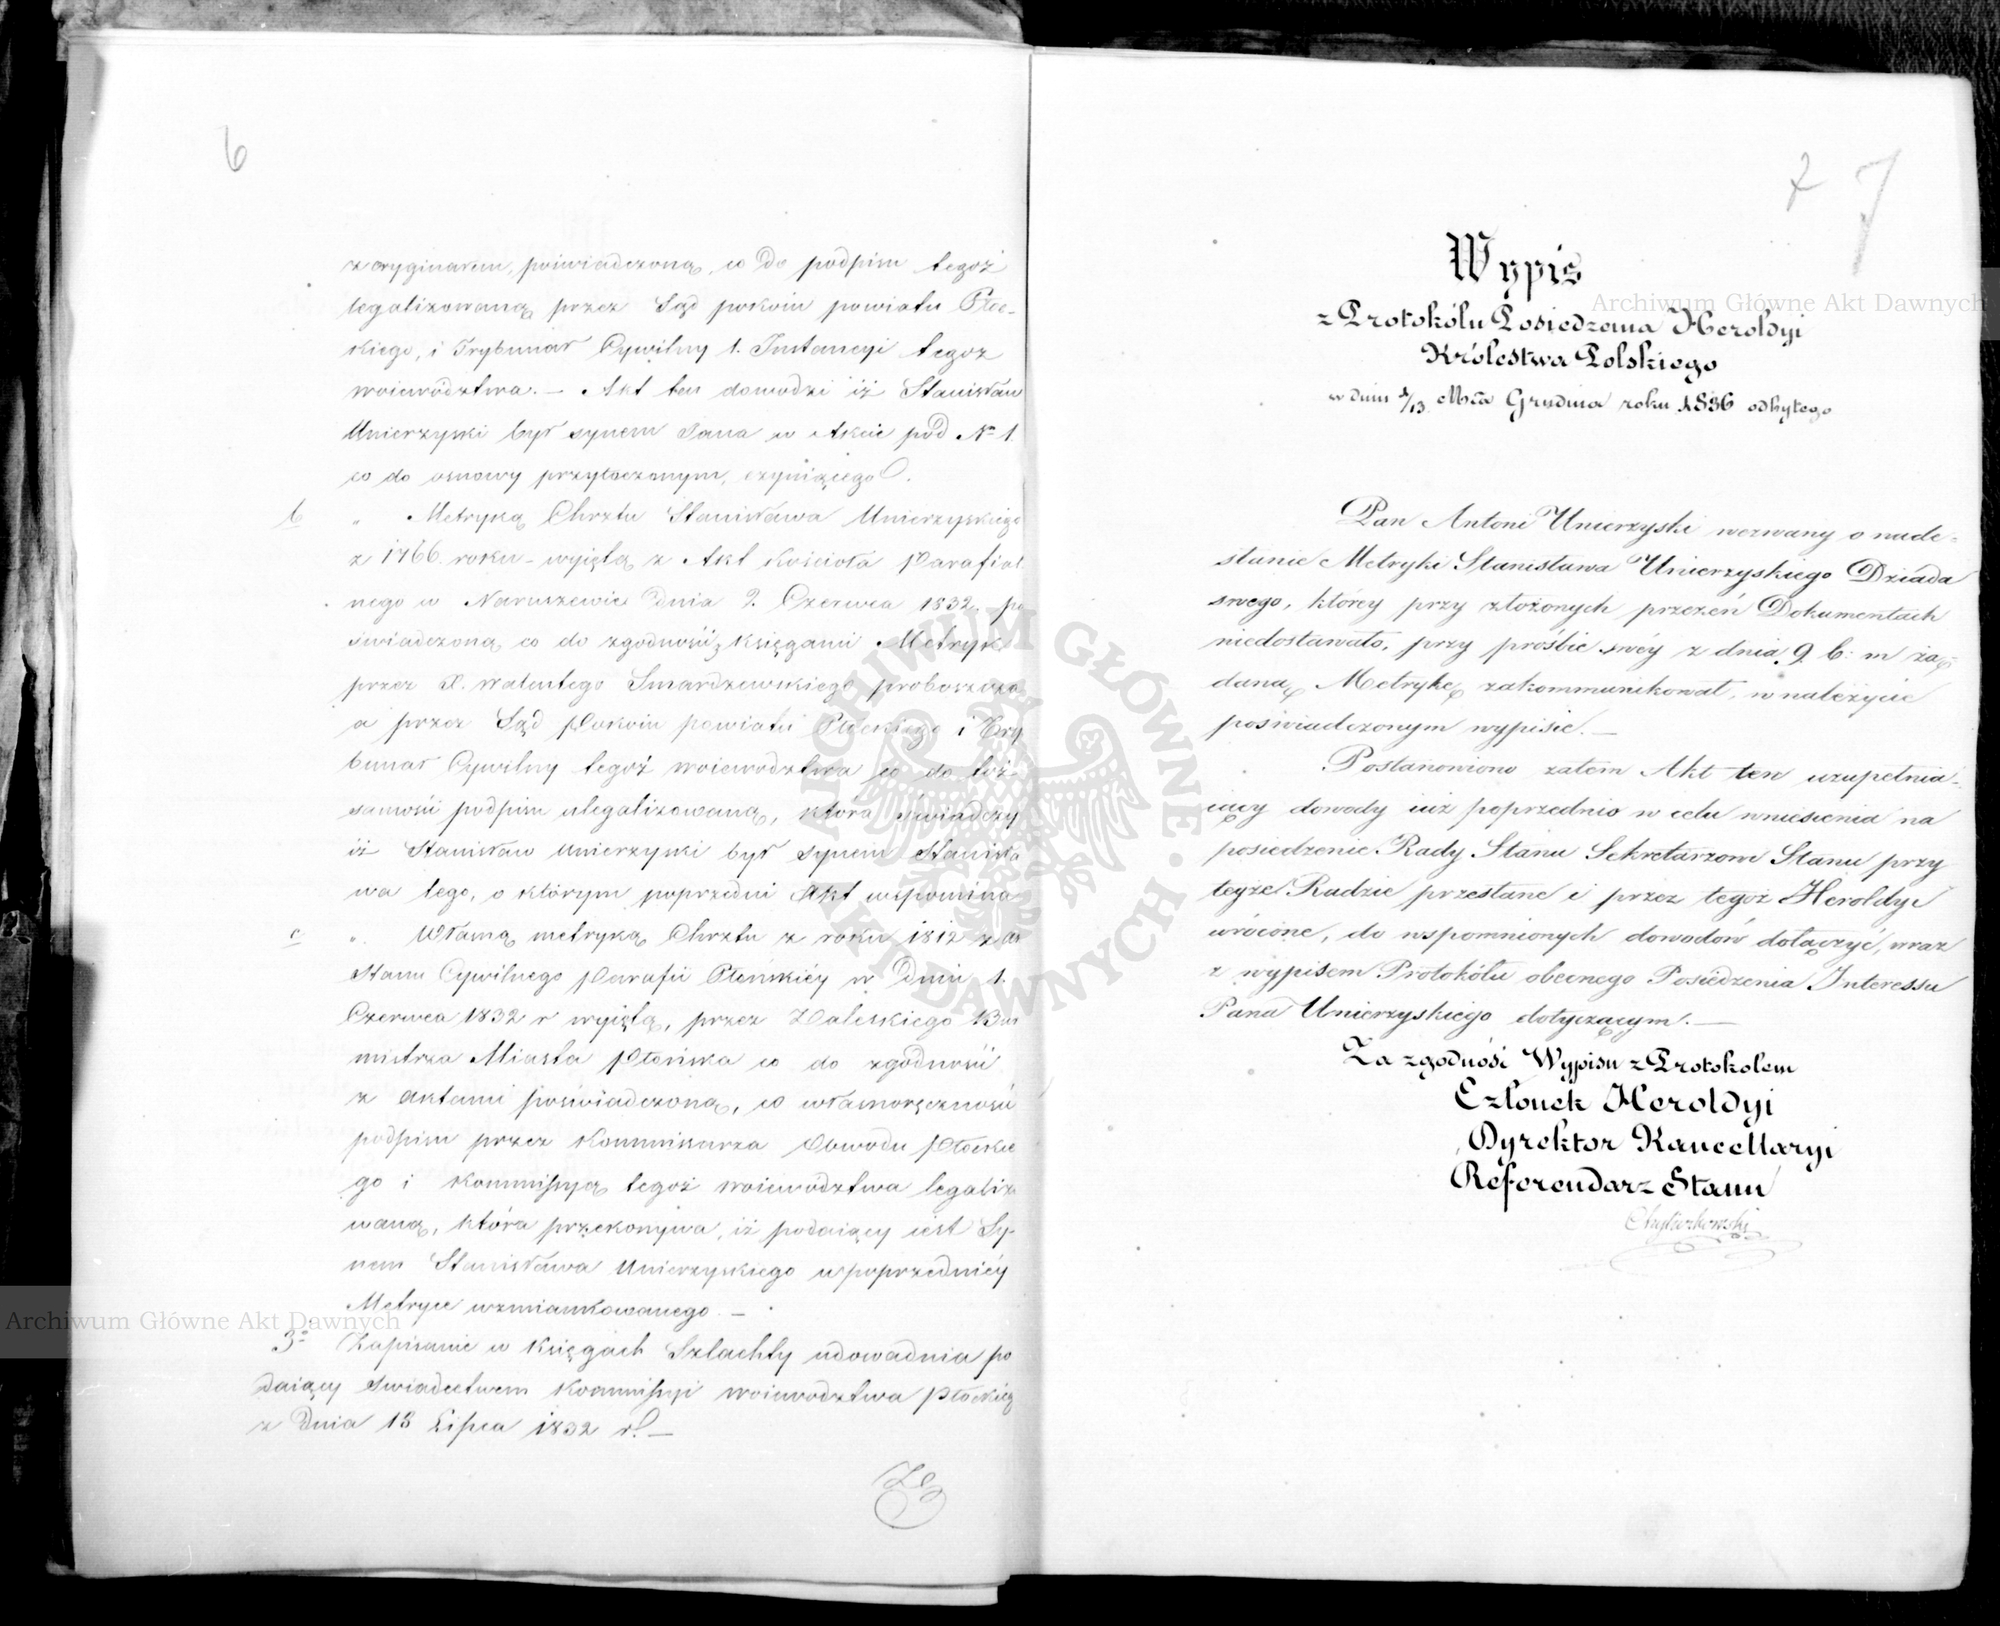 6
z oryginałem, poświadczoną, co do podpisu tegoż
legalizowaną przez Sąd pokoiu powiatu Płoc-
kiego, i Trybunał Cywilny 1. Instancyi tegoż
woiewództwa. — Akt ten dowodzi iż Stanisław
Unierzyski był synem Jana w Akcie pod No 1.
co do osnowy przytoczonym, czyniącego.
b " Metryką Chrztu Stanisława Unierzyskiego
z 1766. roku – wyiętą z Akt Kościoła Parafial
nego w Naruszewie Dnia 2. Czerwca 1832. po
świadczoną co do zgodności z księgami Metryk
przez X. Walentego Smardzewskiego proboszcza
a przez Sąd Pokoiu powiatu Płockiego i Try
bunał Cywilny tegoż woiewództwa co do toż
samości podpisu ulegalizowaną, która świadczy
iż Stanisław Unierzyski był synem Stanisła
wa tego, o którym poprzedni Akt wspomina
c " Własną metryką Chrztu z roku 1812 z akt
Stanu Cywilnego Parafii Płońskiéy w Dniu 1.
Czerwca 1832 r wyiętą, przez Zaleskiego Bur
mistrza Miasta Płońska co do zgodności
z aktami poświadczoną, co własnoręczności
podpisu przez Kommissarza Obwodu Płockie
go i Kommissyą tegoż woiewództwa legalizo
waną, która przekonywa, iż podaiący iest Sy-
nem Stanisława Unierzyskiego w poprzedniéy
Metryce wzmiankowanego. —
3o Zapisanie w Księgach Szlachty udowadnia po
daiący świadectwem Kommissyi woiewództwa Płockieg
z Dnia 13 Lipca 1832 r. —
7 7
Wypis
z Protokółu Posiedzenia Heroldyi
Królestwa Polskiego
w dniu 1/13. Mca Grudnia roku 1836 odbytego
Pan Antoni Unierzyski wezwany o nade-
słanie Metryki Stanisława Unierzyskiego Dziada
swego, którey przy złożonych przezeń Dokumentach
niedostawało, przy prośbie swéy z dnia 9 b: m żą-
daną Metrykę zakommunikował, w należycie
poświadczonym wypisie. —
Postanowiono zatem Akt ten uzupełnia-
iący dowody iuż poprzednio w celu wniesienia na
posiedzenie Rady Stanu Sekretarzowi Stanu przy
teyże Radzie przesłane i przez tegoż Heroldyi
wrócone, do wspomnionych dowodów dołączyć, wraz
z wypisem Protokółu obecnego Posiedzenia Interessu
Pana Unierzyskiego dotyczącym. —
Za zgodność Wypisu z Protokołem
Członek Heroldyi
Dyrektor Kancellaryi
Referendarz Stanu
Archiwum Główne Akt Dawnych
Archiwum Główne Akt Dawnych
ARCHIWUM GŁÓWNE AKT DAWNYCH